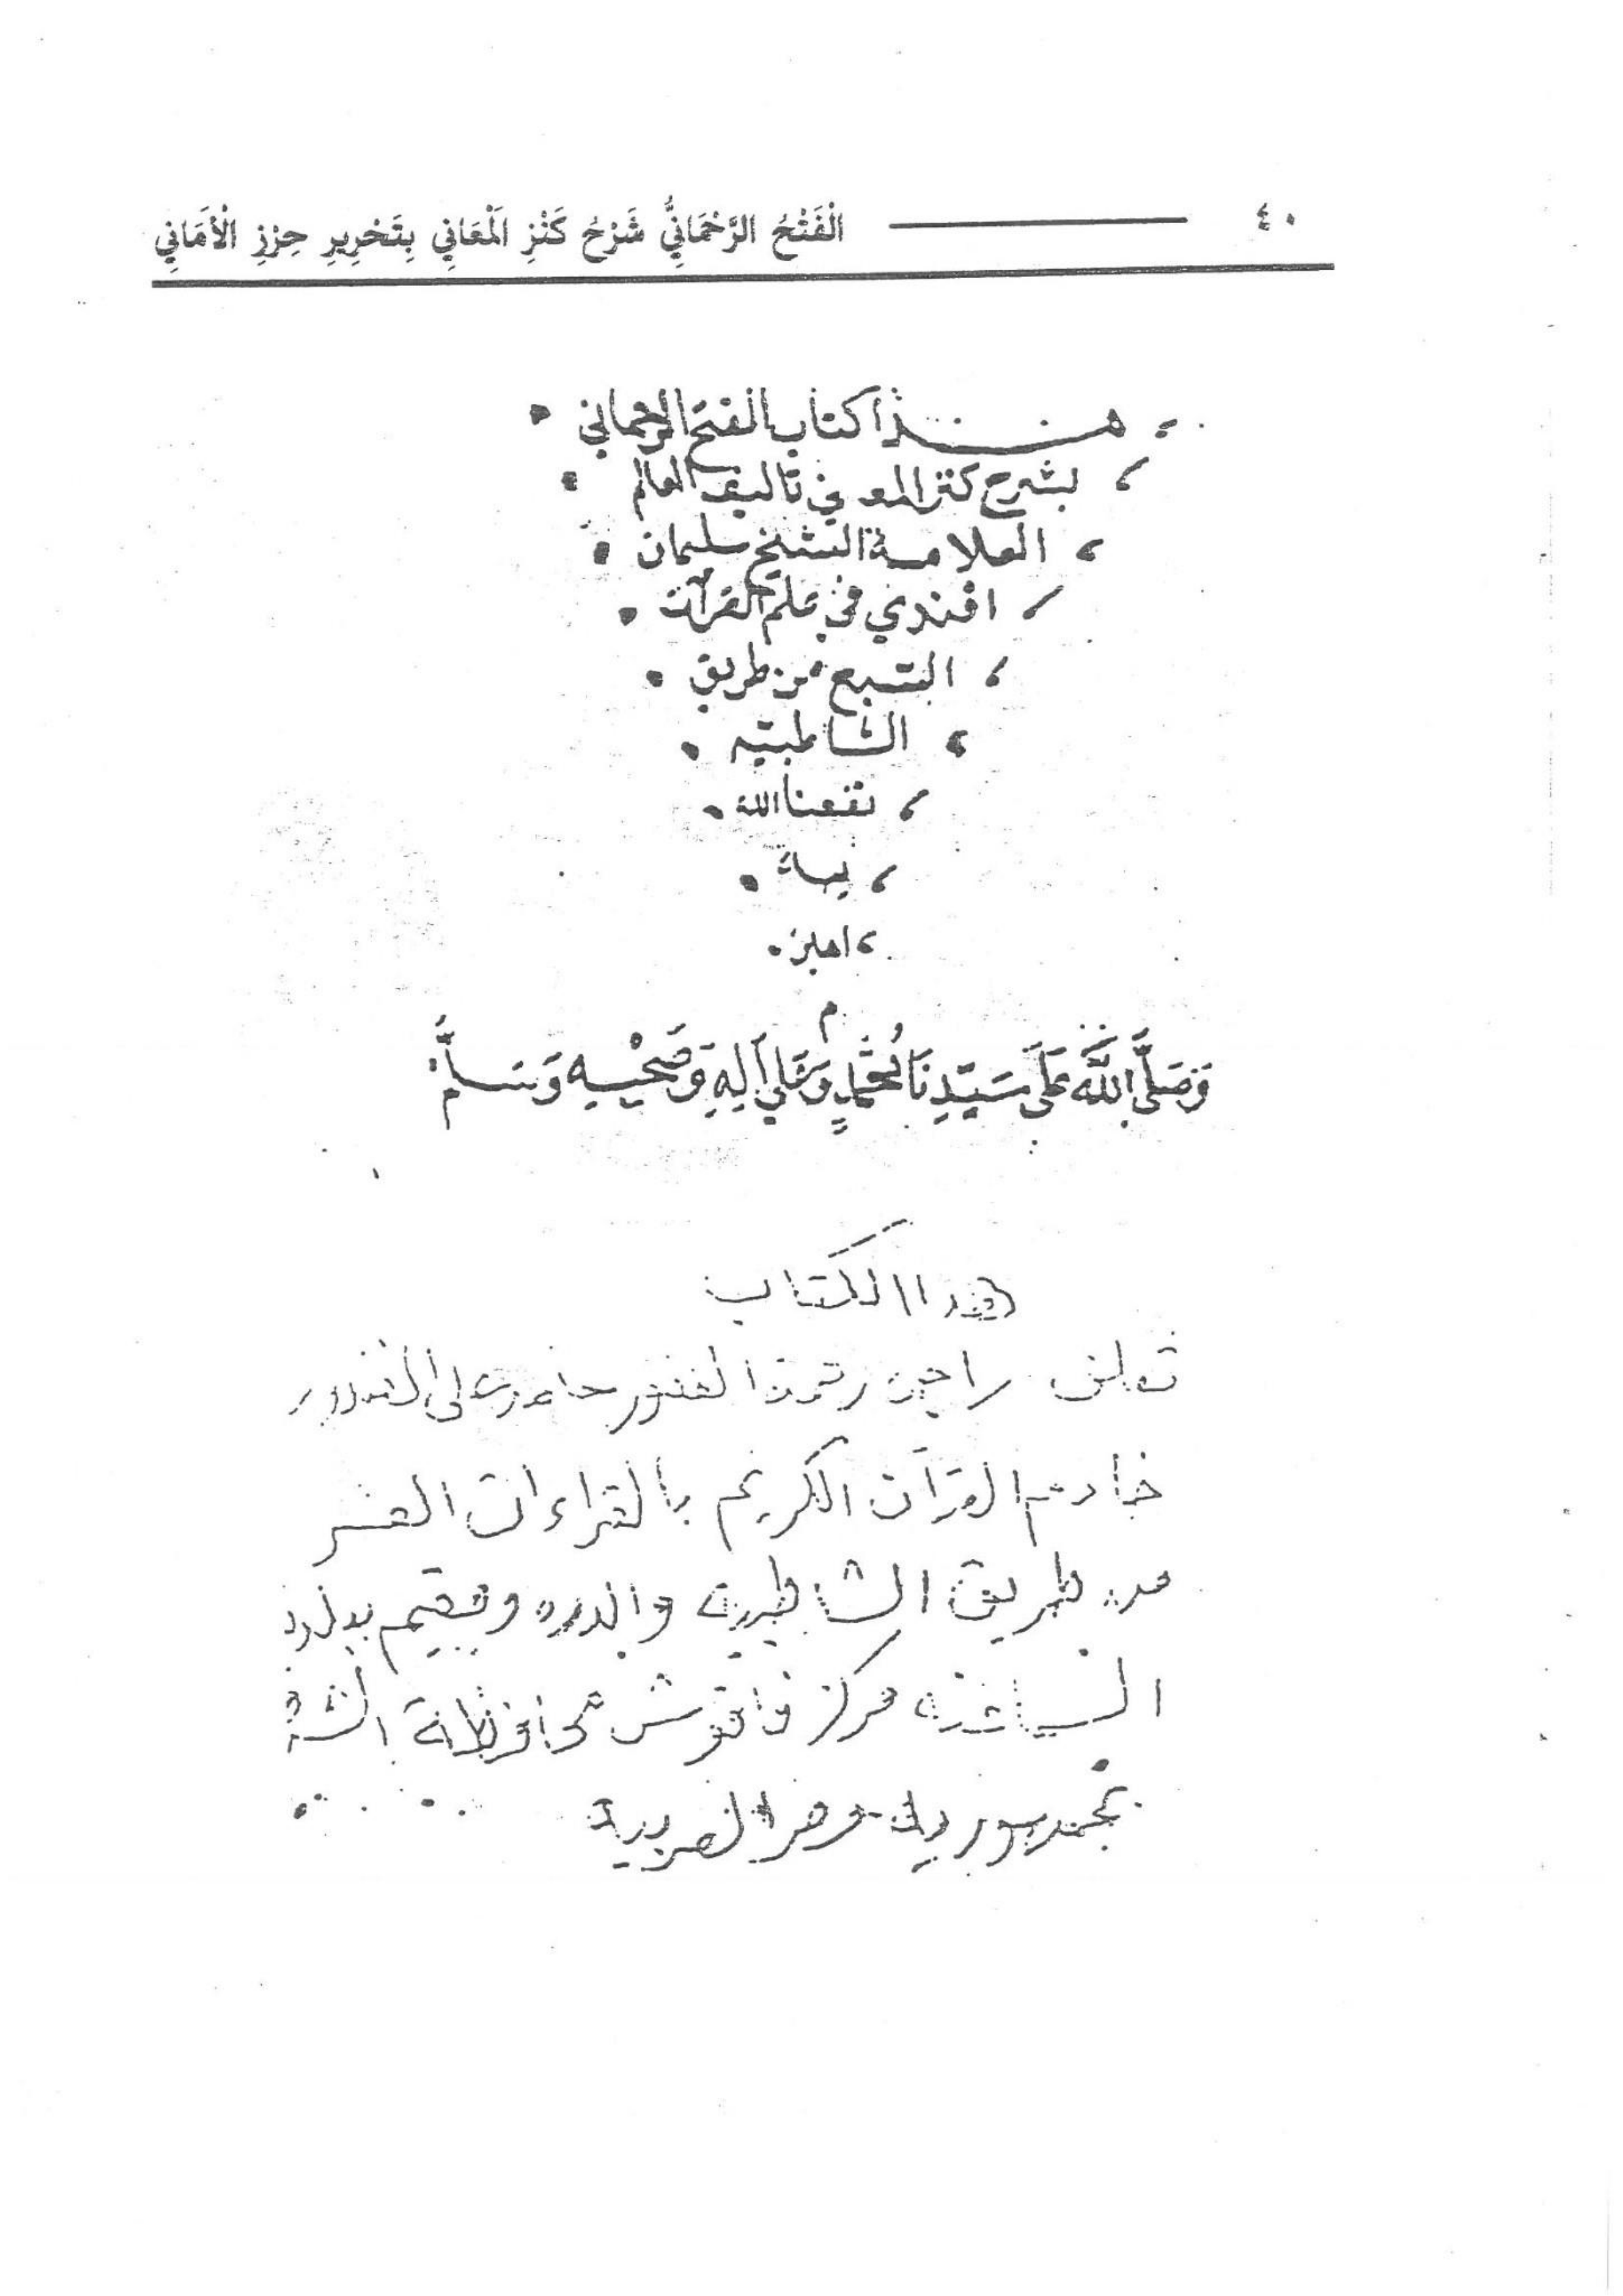 ٤٠ الْفَتْحُ الرَّحْمَانِيُّ شَرْحُ كَنْزِ الْمَعَانِي بِتَحْرِيرِ حِرْزِ الْأَمَانِي
هذا كتاب الفتح الرحماني
بشرح كنز المعاني تاليف العالم
العلامة الشيخ سليمان
افندي في علم القرآت
السبع من طريق
الشاطبيه
نفعنا الله
به
امين
م
وَصَلَّى اللَّه عَلَى سَيِّدِنَا مُحَمَّدٍ وَعَلَي آلِهِ وَصَحْبِهِ وَسَلَّم
هذا الكتاب
راجى رحمة الغفور على الغندور
خادم القرآن الكريم بالقراءات العشر
من طريق الشاطبية والدره ومقيم
مركز فاقوش محافظة
بجمهورية مصر العربية